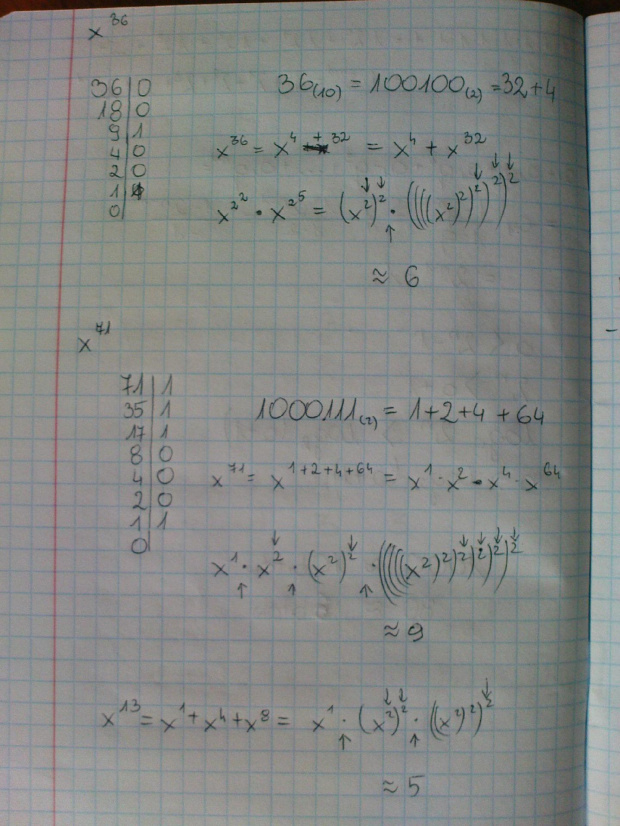 x³⁶
36 | 0
18 | 0
9 | 1
4 | 0
2 | 0
1 | 1
0
36₍₁₀₎ = 100100₍₂₎ = 32+4
x³⁶ = x⁴⁺³² = x⁴ + x³²
x^2^2 · x^2^5 = (x²)² · (((((x²)²)²)²)²
↓ ↓ ↓ ↓ ↓
↑
≈ 6
x⁷¹
71 | 1
35 | 1
17 | 1
8 | 0
4 | 0
2 | 0
1 | 1
0
1000111₍₂₎ = 1+2+4+64
x⁷¹ = x¹⁺²⁺⁴⁺⁶⁴ = x¹ · x² · x⁴ · x⁶⁴
↓ ↓ ↓ ↓ ↓ ↓
x¹ · x² · (x²)² · ((((((x²)²)²)²)²)²
↑ ↑ ↑
≈ 9
x¹³ = x¹ + x⁴ + x⁸ = x¹ · (x²)² · ((x²)²)²
↓ ↓ ↓
↑ ↑
≈ 5